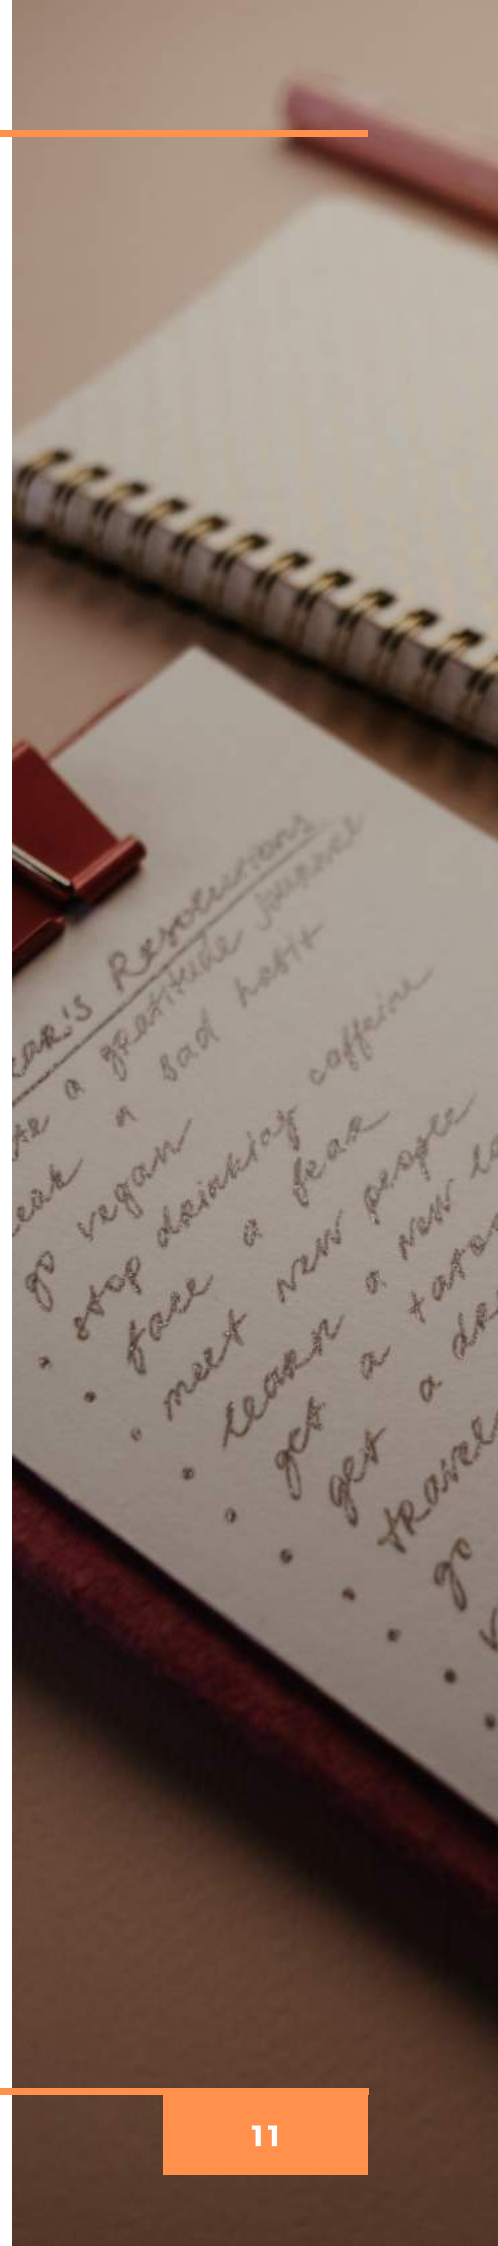 ear's Resolutions
te a gratitude journal
eak a bad habit
go vegan
• stop drinking caffeine
• face a fear
• meet new people
• learn a new la
• get a tatoo
• get a dr
• travel
• go
11